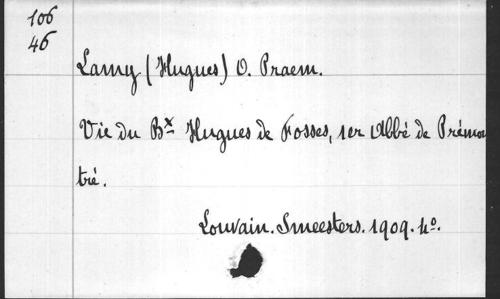 106
46
Lamy (Hugues) O. Praem.
Vie du Bx Hugues de Fosses, 1er Abbé de Prémon
tré.
Louvain. Smeesters. 1909. 4o.